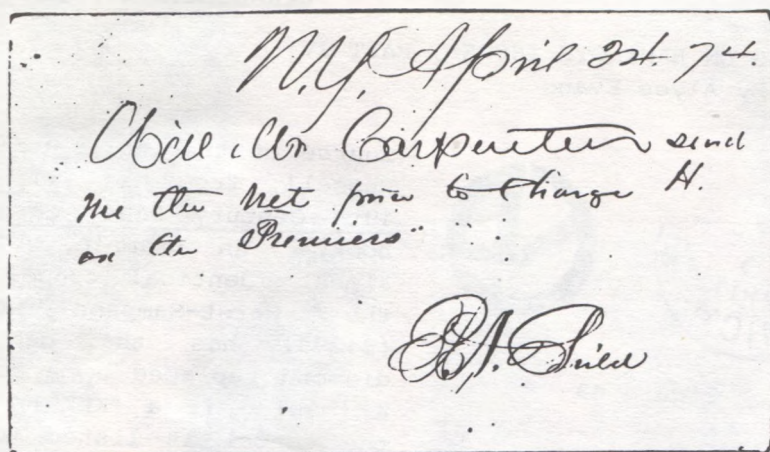 N.Y. April 24. 74.
Will Mr Carpenter send
me the net price to charge H.
on the "Premiers"